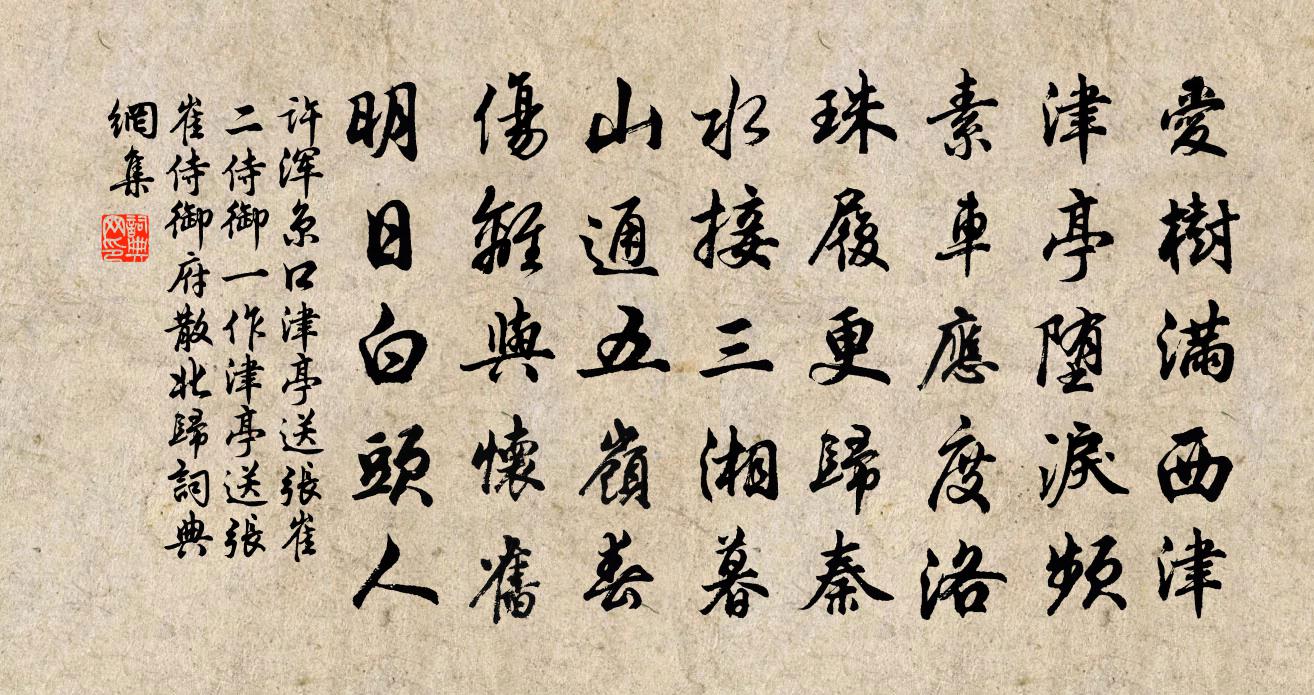 愛樹滿西津
津亭墮淚頻
素車應度洛
珠履更歸秦
水接三湘暮
山通五嶺春
傷離與懷舊
明日白頭人
許渾京口津亭送張崔
二侍御一作津亭送張
崔侍御府散北歸詞典
網集
詞典網印